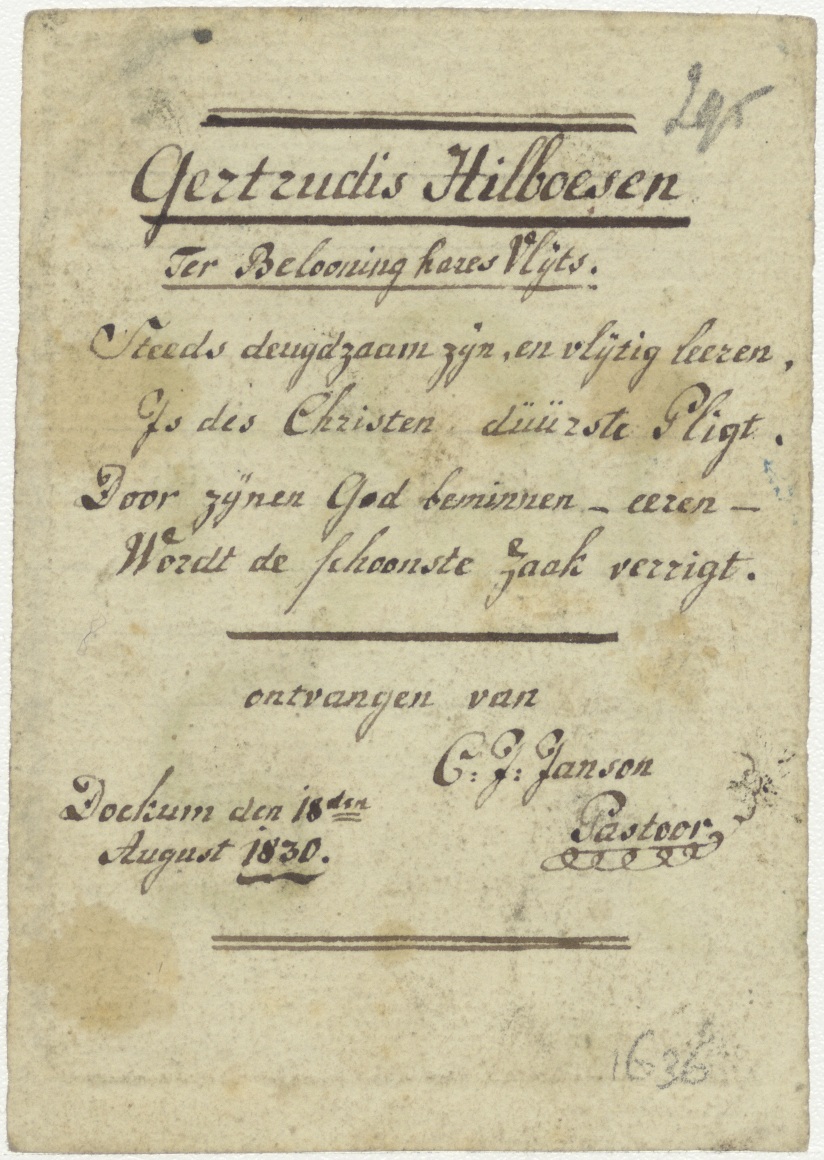 Gertrudis Hilboesen
Ter Belooning hares Vlÿts.
Steeds deugdzaam zÿn, en vlÿtig leeren,
Is des Christen düürste Pligt.
Door zÿnen God beminnen – eeren –
Wordt de schoonste zaak verrigt.
ontvangen van
C: J: Janson
Pastoor
Dockum den 18den
August 1830.
1636